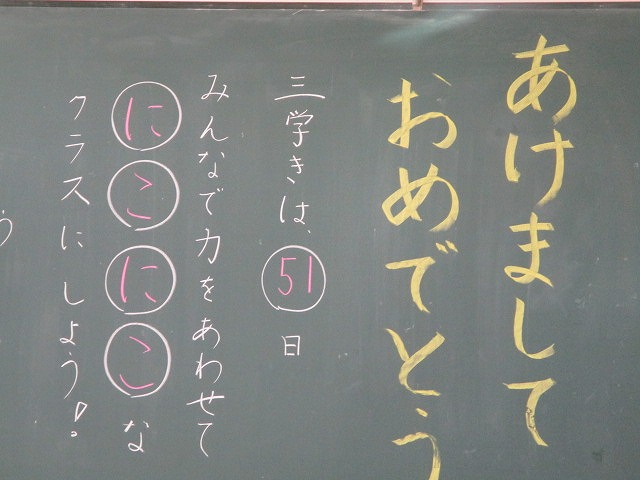 あけまして
おめでとう
三学きは、51日
みんなで力をあわせて
にこにこな
クラスにしよう!
う